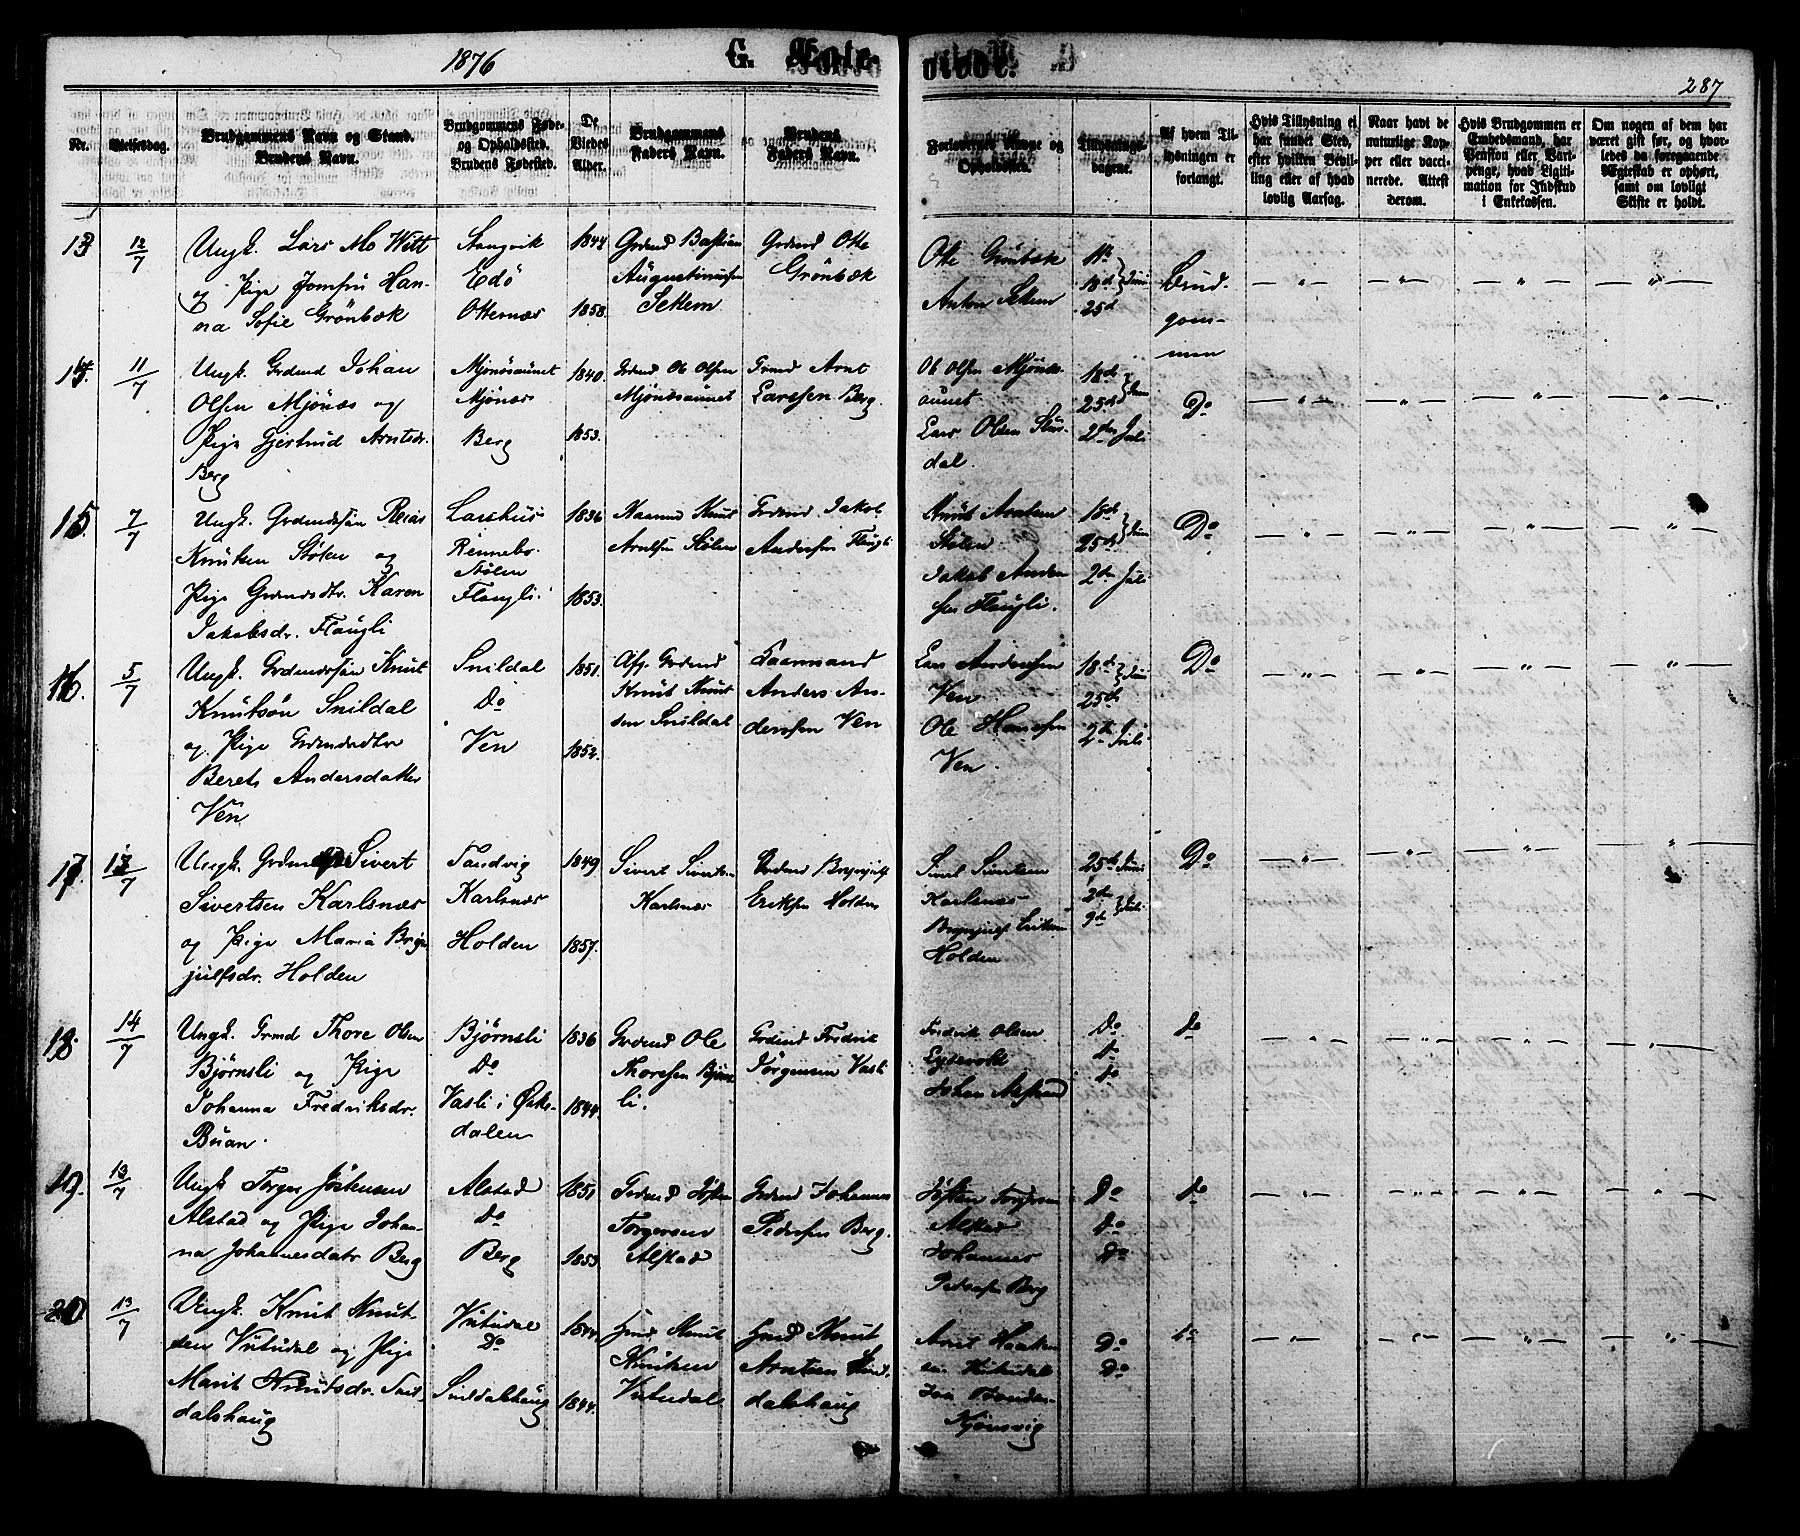 1876
G. Egte-
viede.
287
Nr.
Vielsesdag.
Brudgommens Navn og Stand.
Brudens Navn.
Brudgommens Føde-
og Opholdssted.
Brudens Fødested.
De
Viedes
Alder.
Brudgommens
Faders Navn.
Brudens
Faders Navn.
Forloverges Navne og
Opholdssted.
Tillysnings-
dagene.
Af hvem Til-
lysningen er
forlangt.
Hvis Tillysning ei
har fundet Sted,
efter hvilken Bevil-
ling eller af hvad
lovlig Aarsag.
Naar havt de
naturlige Kop-
per eller vacci-
nerede. Attest
derom.
Hvis Brudgommen er
Embedsmand, har
Pension eller Vart-
penge, hvad Ligiti-
mation for Indskud
i Enkekassen.
Om nogen af dem har
været gift før, og hvor-
ledes da foregaaende
Ægteskab er ophørt,
samt om lovligt
Skifte er holdt.
13
12/7
Ungk. Lars Mo Witt
og Pige Jomfru Han-
na Sofie Grönbæk
Aangvik
Edö
Otternæs
1844
1858.
Grdmd Bastian
Augustinussen
Settem
Grdmd Otte
Grönbæk
Otte Grönbæk
Anton Settem
11te
18de Juni
25de
Brud-
gom-
men
14.
11/7
Ungk. Grdmd Johan
Olsen Mjönæs og
Pige Gjertrud Arntsdr.
Berg
Mjönæsaunet
Mjönæs
Berg
1840.
1853.
Grdmd Ole Olsen
Mjönæsaunet
Grmd Arnt
Larssen Berg
Ole Olsen Mjönæs-
aunet
Lars Olsen Stor-
dal.
18de
25de Juni
2den Juli
Do
15.
7/7
Ungk. Grdmdssön
Knutsen Stölen og
Pige Grdmdsdtr. Karen
Jakobsdr. Flaugli
Larshus
Rennebo.
Stölen
Flaugli.
1836
1853.
Husmd Knut
Arntsen Stölen
Grdmd Jakob
Andersen Flaugli
Knut Arntsen
Stölen
Jakob Ander-
sen Flaugli.
18de
25de Juni
2den Juli
Do
16.
5/7
Ungk. Grdmdssön Knut
Knutsön Snildal
og Pige Grdmdsdtr
Beret Andersdatter
Ven
Snildal
Do
Ven
1851.
1852.
Afg. Grdmd
Knut Knut
sen Snildal
Gaarmand
Anders An-
derssen Ven
Lars Anderssen
Ven
Ole Hanssen
Ven
18de Juni
25de
2den Juli
Do
17.
12/7
Ungk. Grdmd Sivert
Sivertsen Karlsnæs
og Pige Maria Bryn
julfsdr. Holden
Tandvig
Karlsnæs
Holden
1849
1857.
Sivert Siverts.
Karlsnæs
Grdmd Brynjulf
Eriksen Holden
Sivert Sivertsen
Karlsnæs
Brynjulf Eriksen
Holden
25de Juni
2den
9de Juli
Do
18.
14/7
Ungk. Grmd Thore Olsen
Björnsli og Pige
Johanna Fredriksdr.
Büan.
Bjørnsli
Do
Vasli i Øks-
dalen
1836
1844.
Grdmd Ole
Thoresen Björns-
li.
Grdmd Fredrik
Jörgensen Vasli
Fredrik Olsen
Eydsvold
Johan Alstad
Do
Do
Do
Do
19.
13/7
Ungk Torger Jöstensen
Alstad og Pige Johan-
na Johannesdatr Berg
Alstad
Do
Berg
1851
1853.
Grdmd Josten
Torgersen
Alstad
Grdmd Johannes
Pedersen Berg.
Josten Torgersen
Alstad
Johannes
Pedersen Berg
Do
Do
Do
Do
20.
13/7
Ungk. Knut Knut-
sen Vutudal og Pige
Marit Knutsdr. Snil-
dalshaug
Vutudal
Do
Snildalshaug
1844.
1844.
Grmd Knut
Knutsen
Vutudal
Grmd Knut
Arntsen Snil-
dalshaug
Arnt Haaken
sen Vutudal
Njönsvig
Do
Do
Do